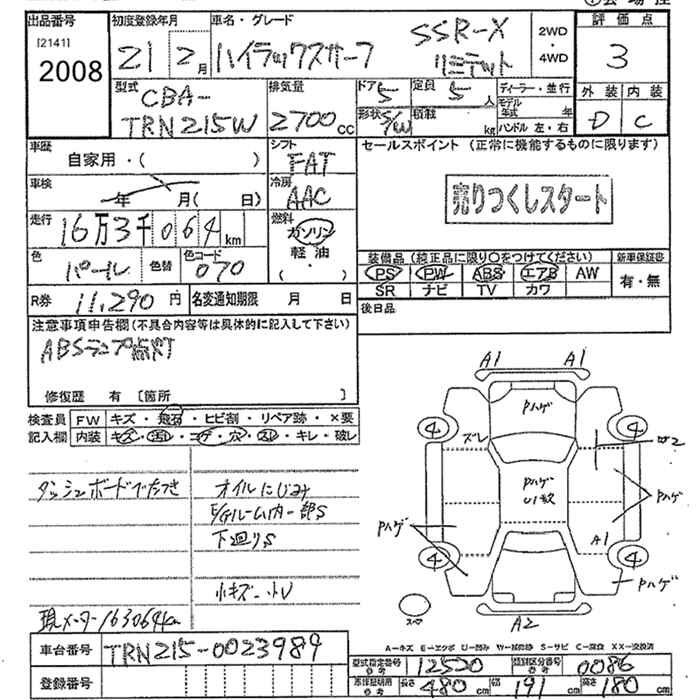 出品番号 初度登録年月 車名・グレード 評価点
[2141] 2008
21 2月 ハイラックスサーフ SSR-X リミテット 2WD・4WD 3
型式 排気量 ドア 5 定員 5人 ディーラー・並行 外装 内装
CBA-TRN215W 2700cc 形状 S/W 積載 kg モデル年式 年 ハンドル 左・右 D C
車歴 自家用・( ) シフト FAT セールスポイント (正常に機能するものに限ります)
車検 年 月( 日) 冷房 AAC 売りつくしスタート
走行 16万3千064km 燃料 ガソリン 軽油 ・( )
色 パール 色替 色コード 070
装備品 (純正品に限り○をつけてください) 新車保証書
PS PW ABS エアB AW 有・無
SR ナビ TV カワ
R券 11,290円 名変通知期限 月 日 後日品
注意事項申告欄(不具合内容等は具体的に記入して下さい)
ABSランプ点灯
修復歴 有 〔箇所 〕
検査員 FW キズ・飛石・ヒビ割・リペア跡・×要
記入欄 内装 キズ・汚レ・コゲ・穴・スレ・キレ・破レ
ダッシュボードベたつき オイルにじみ
E/Gルーム内一部S
下廻りS
小キズ 小U
現メーター163064km
A1 A1
Pハゲ
4 4
ズレ
Pハゲ
U1 Pハゲ
Pハゲ
A1
4 4
Pハゲ
スペア
A2
A-キズ E-エクボ U-凹み W-補修跡 S-サビ C-腐食 XX-交換済
車台番号 TRN215-0023989
登録番号
型式指定番号 参考 12520 類別区分番号 参考 0086
車検証明用 参考 長さ 480cm 幅 191cm 高さ 180cm